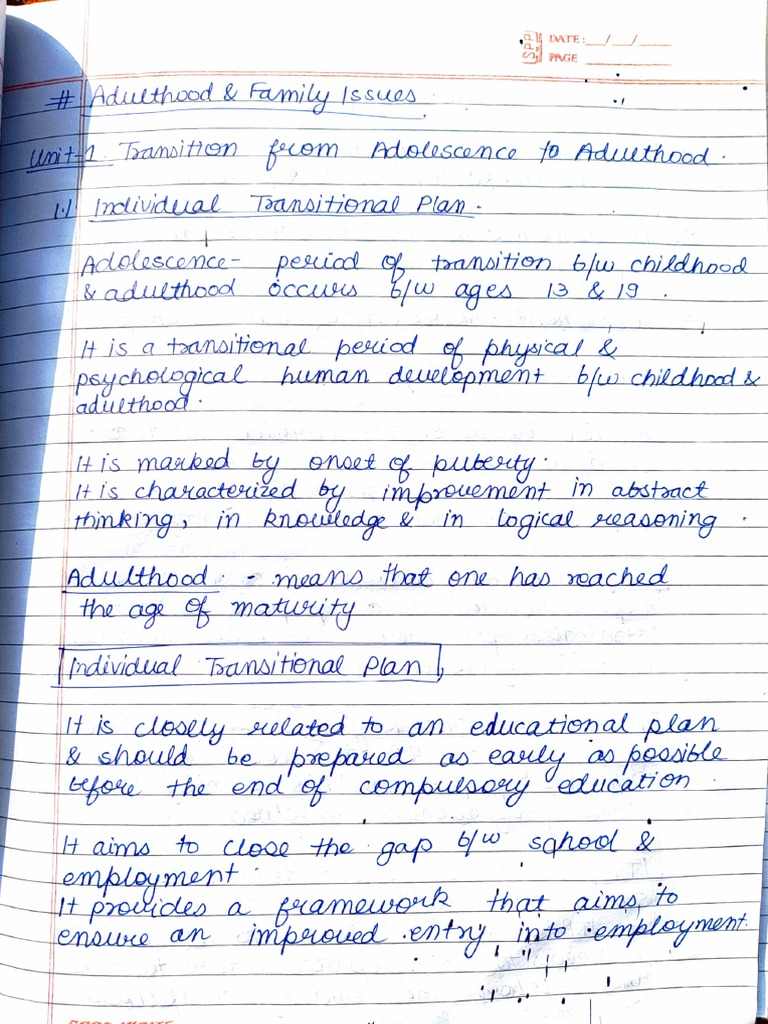 SPP DATE: __/__/__
PAGE
# Adulthood & Family Issues
Unit-1 Transition from Adolescence to Adulthood.
1.1 Individual Transitional Plan.
Adolescence- period of transition b/w childhood
& adulthood occurs b/w ages 13 & 19.
It is a transitional period of physical &
psychological human development b/w childhood &
adulthood.
It is marked by onset of puberty.
It is characterized by improvement in abstract
thinking, in knowledge & in logical reasoning.
Adulthood. - means that one has reached
the age of maturity
Individual Transitional Plan
It is closely related to an educational plan
& should be prepared as early as possible
before the end of compulsory education.
It aims to close the gap b/w school &
employment.
It provides a framework that aims to
ensure an improved entry into employment.